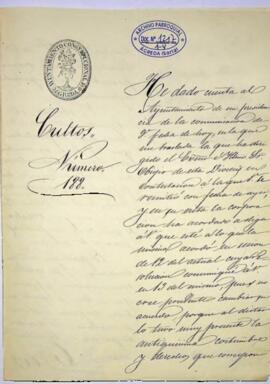 AYUNTAMIENTO CONSTITUCIONAL DE
ARCHIVO PARROQUIAL
DOC. Nº 1217
AGREDA (SORIA)
Cultos.
Número.
188.
He dado cuenta al
Ayuntamiento de mi presiden
cia de la comunicacion de
Vª fecha de hoy, en la que
me traslada la que ha di
rigido el Excmo é Ilmo Sr.
Obispo de esta Diocesis en
contestacion á la que
remitio con fecha de ayer,
y en su vista la corpora
cion ha acordado se diga
á Vª que esté á lo que la
misma acordó en sesion
de 12 del actual cuya re
solucion comuniqué á Vª
en 13 del mismo, pues no
cree prudente cambiar su
acuerdo porque al dictar
lo tuvo muy presente la
antiquisima costumbre
y derechos que